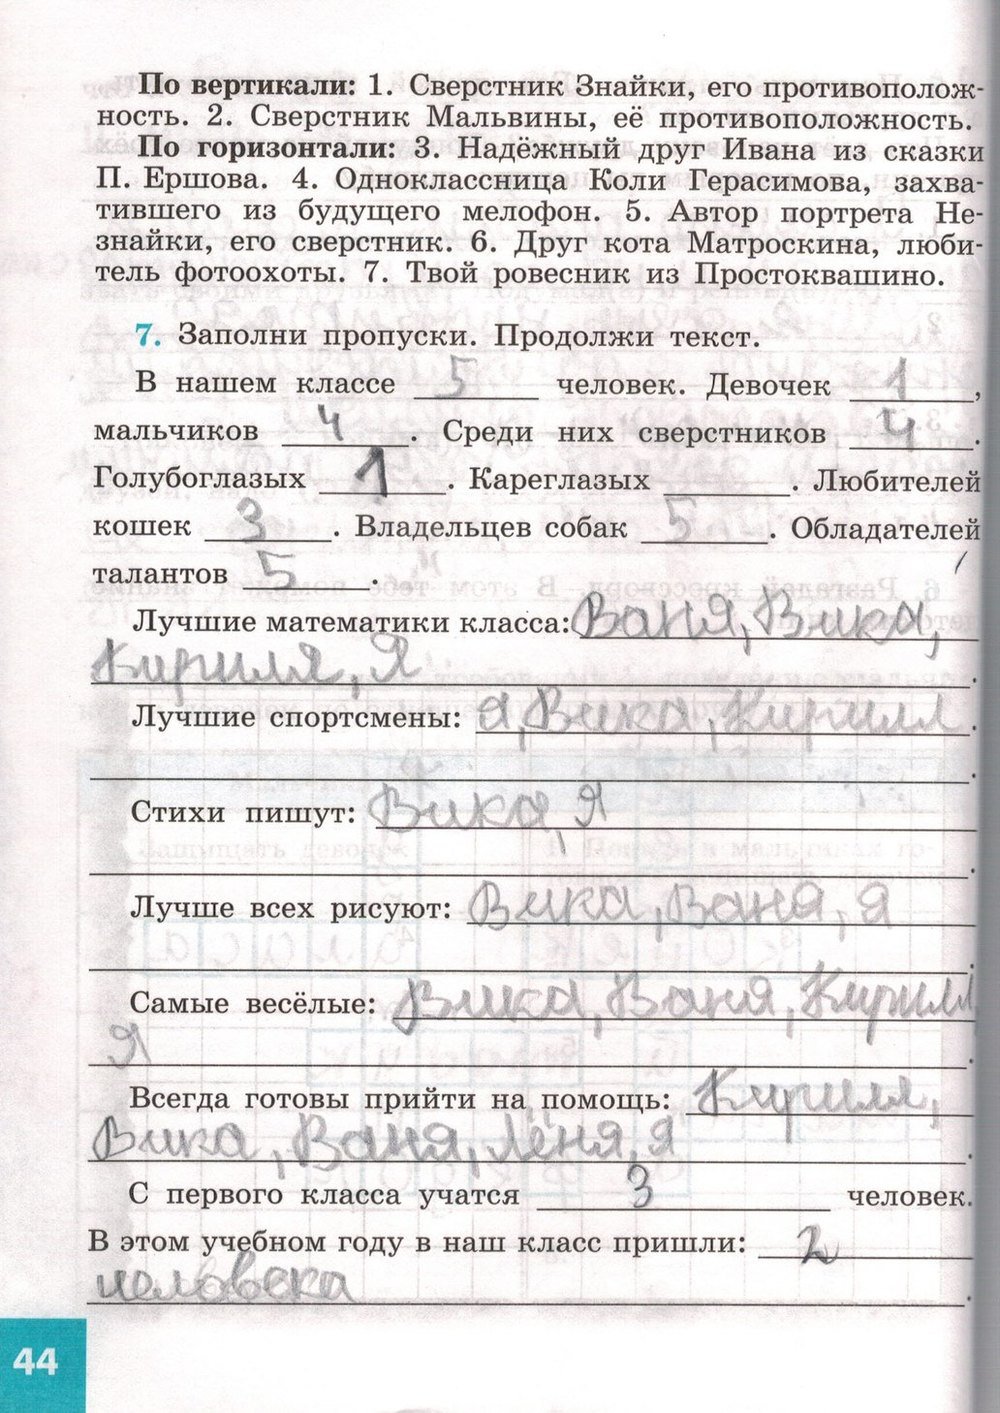 По вертикали: 1. Сверстник Знайки, его противополож-
ность. 2. Сверстник Мальвины, её противоположность.
По горизонтали: 3. Надёжный друг Ивана из сказки
П. Ершова. 4. Одноклассница Коли Герасимова, захва-
тившего из будущего мелофон. 5. Автор портрета Не-
знайки, его сверстник. 6. Друг кота Матроскина, люби-
тель фотоохоты. 7. Твой ровесник из Простоквашино.
7. Заполни пропуски. Продолжи текст.
В нашем классе 5 человек. Девочек 1,
мальчиков 4. Среди них сверстников 4.
Голубоглазых 1. Кареглазых ____. Любителей
кошек 3. Владельцев собак 5. Обладателей
талантов 5.
Лучшие математики класса: Ваня, Вика,
Кириля, Я.
Лучшие спортсмены: Я, Вика, Кирилл.
Стихи пишут: Вика, Я
Лучше всех рисуют: Вика, Ваня, Я
Самые весёлые: Вика, Ваня, Кирилл
Я.
Всегда готовы прийти на помощь: Кирилл,
Вика, Ваня, Лёня, Я.
С первого класса учатся 3 человек.
В этом учебном году в наш класс пришли: 2
человека.
44